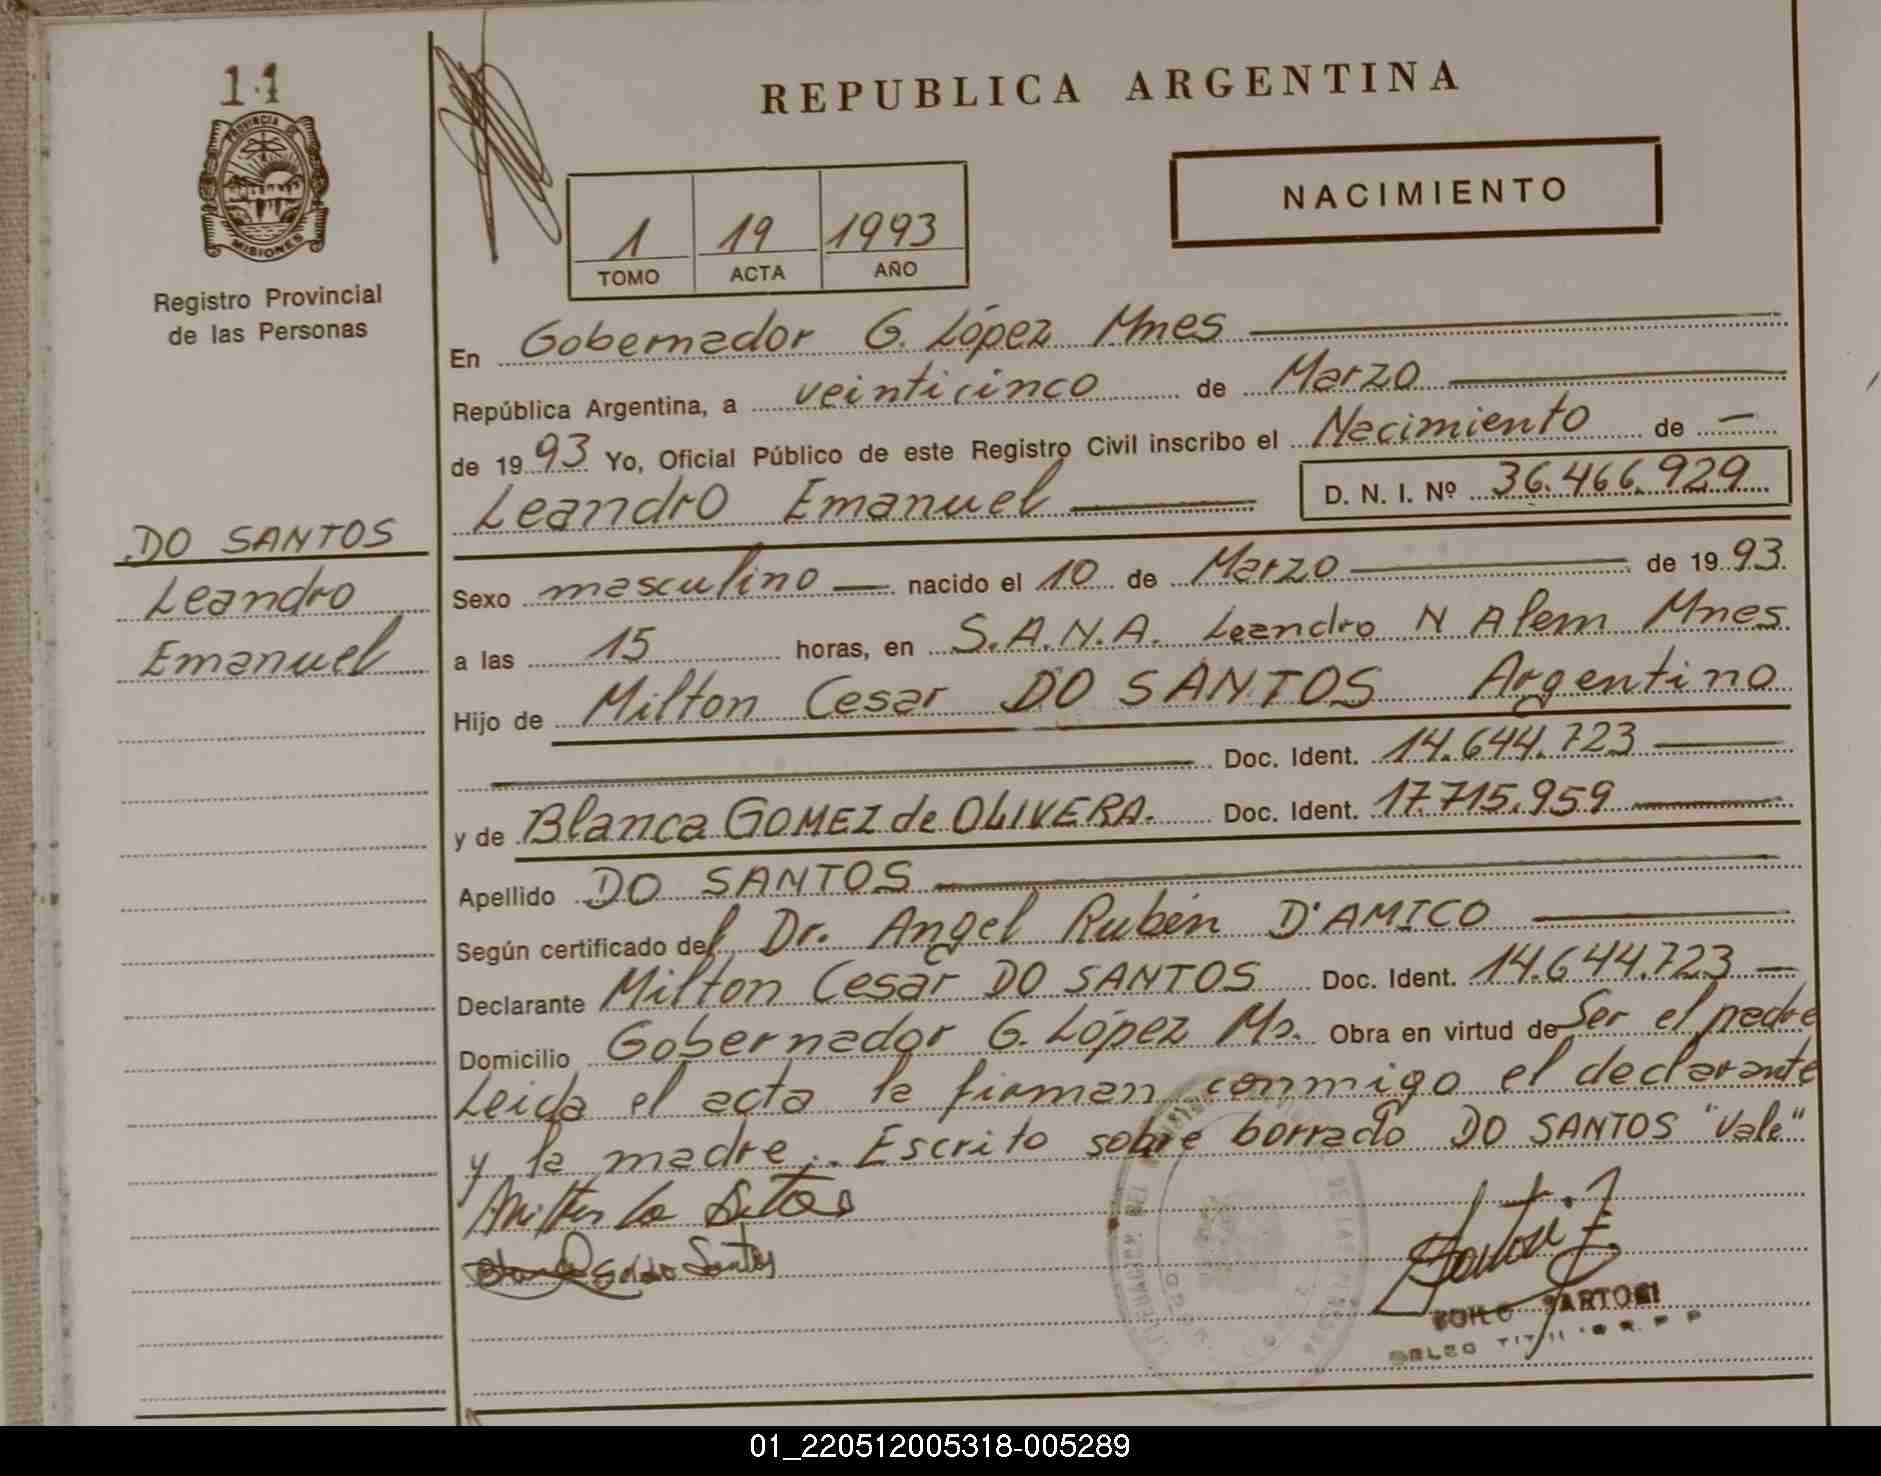 11
PROVINCIA DE
MISIONES
Registro Provincial
de las Personas
DO SANTOS
Leandro
Emanuel
REPUBLICA ARGENTINA
NACIMIENTO
1 19 1993
TOMO ACTA AÑO
En Gobernador G. López Mnes
República Argentina, a veinticinco de Marzo
de 1993 Yo, Oficial Público de este Registro Civil inscribo el Nacimiento de —
Leandro Emanuel D. N. I. Nº 36.466.929
Sexo masculino — nacido el 10 de Marzo de 1993
a las 15 horas, en S.A.N.A. Leandro N Alem Mnes
Hijo de Milton Cesar DO SANTOS Argentino
Doc. Ident. 14.644.723
y de Blanca GOMEZ de OLIVERA. Doc. Ident. 17.715.959
Apellido DO SANTOS
Según certificado del Dr. Angel Rubén D'AMICO
Declarante Milton Cesar DO SANTOS Doc. Ident. 14.644.723 —
Domicilio Gobernador G. López Ms. Obra en virtud de Ser el padre
Leida el acta la firman conmigo el declarante
y la madre. Escrito sobre borrado DO SANTOS "Vale"
SARTORI
01_220512005318-005289